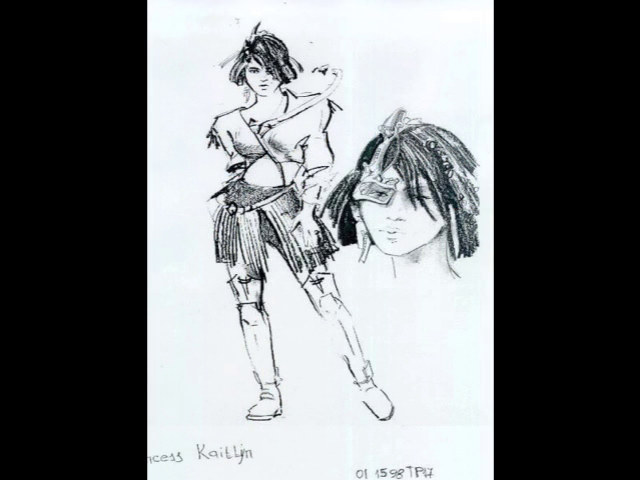 ncess Kaitlyn
01 1598TP17